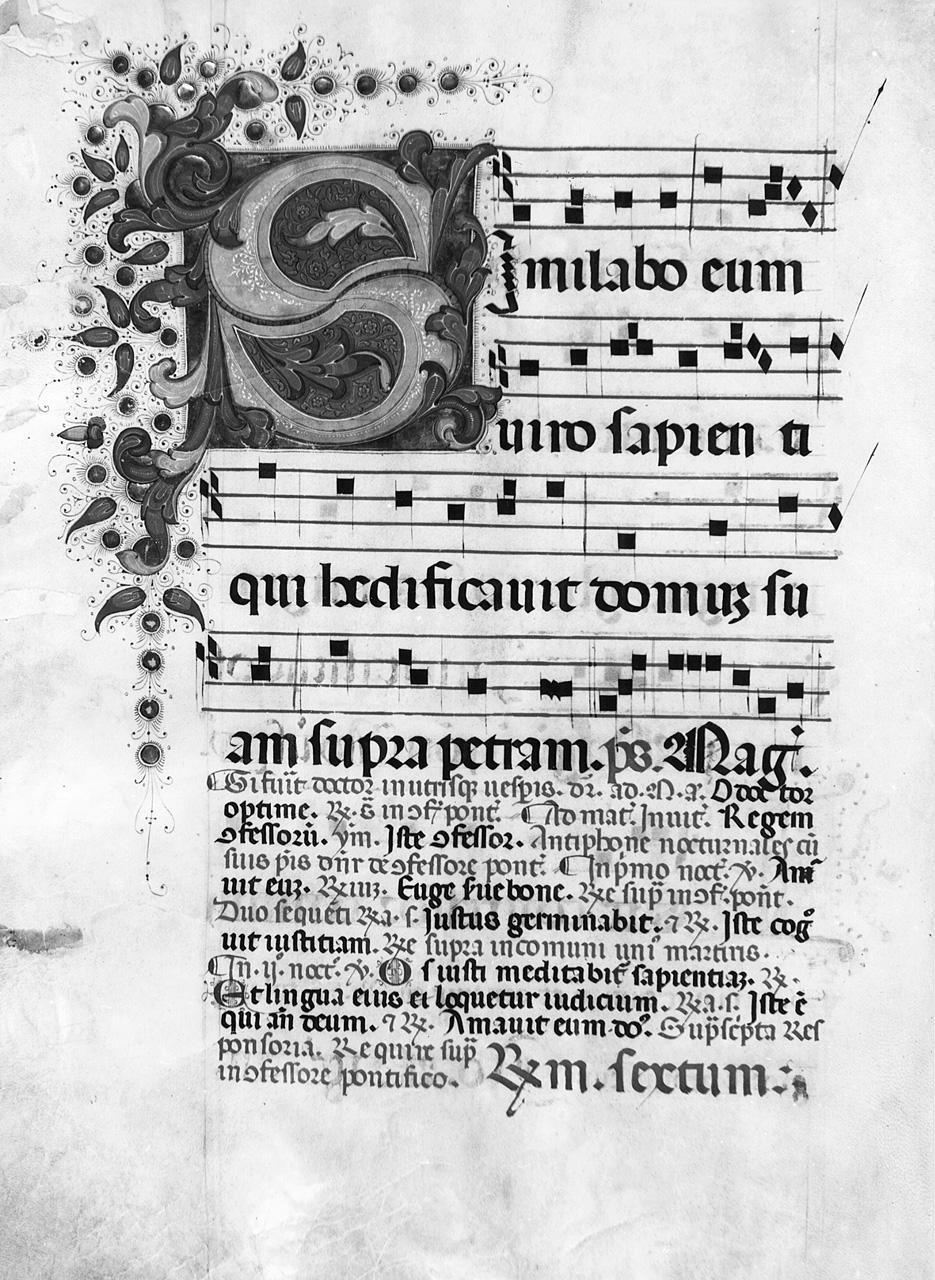 Similabo eum
uiro sapien ti
qui hedificauit domuꝫ su
am̅ supra petram. p̅s. Mag̅.
Si fuit̅ doctor in utrisq uesp̅is. dr̅. ad. M. a̅. O doc tor
optime. ℞. ẜ in ꝯf̅. pont̅. Ad mat̅. Inuit̅. Regem
ꝯfessoru̅. ym̅. Iste ꝯfessor. Antiphone nocturnales cu̅
suis p̅is dn̅r de ꝯfessore pont̅. In p̅mo noct̅. ℣. Am̅
uit euꝫ. ℞ iiiꝫ. Euge serue bone. ℞e sup̅ in ꝯf̅. pont̅.
Duo seque̅ti ℞a. s. Iustus germinabit. ⁊ ℞. Iste cog̅
uit iustitiam. ℞e supra in comuni uni̅ martiris.
In. ij. noct̅. ℣. Os iusti meditabit̅ sapientiaꝫ. ℞.
Et lingua eius ei loquetur iudicium. ℞a. s. Iste e̅
qui an̅ deum. ⁊ ℞. Amauit eum do̅. Sup̅sc̅pta Res
ponsoria. Require sup̅
in ꝯfessore pontifico. ℞m. sextum.